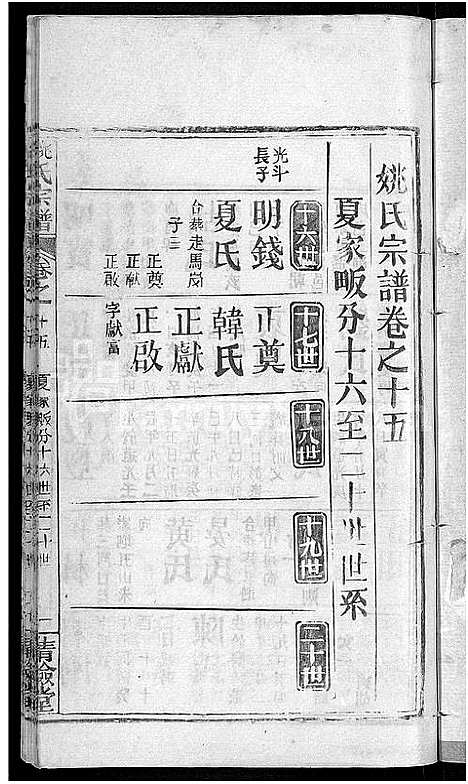 姚氏宗譜卷之十五
夏家畈分十六至二十世世系
十六世
十七世
十八世
十九世
二十世
光斗
長子
明錢
夏氏
合葬走馬崗
子三
正奠
正獻
正啟
正奠
韓氏
正獻
正啟
字獻富
姚氏宗譜
卷之十五
夏家畈分十六世至二十世
一